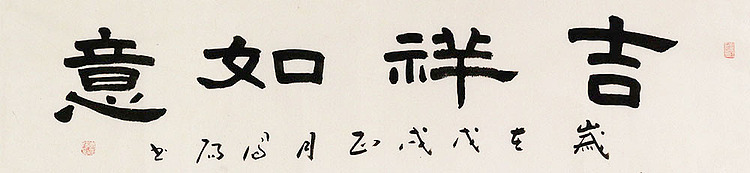 吉祥如意
歲在戊戌正月书